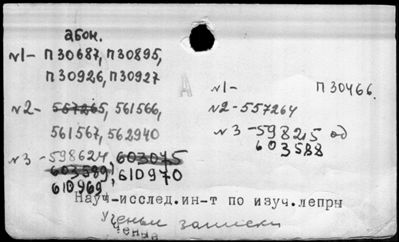 абон.
N1- П30687, П30895,
П30926, П30927
N2- 557265, 561566,
561567, 562940
N3 -598624, 603045
603589, 610970
610969,
А
N1- П30466.
N2-557264
N3 -598215 од
603588
Науч-исслед.ин-т по изуч.лепры
Ученые записки